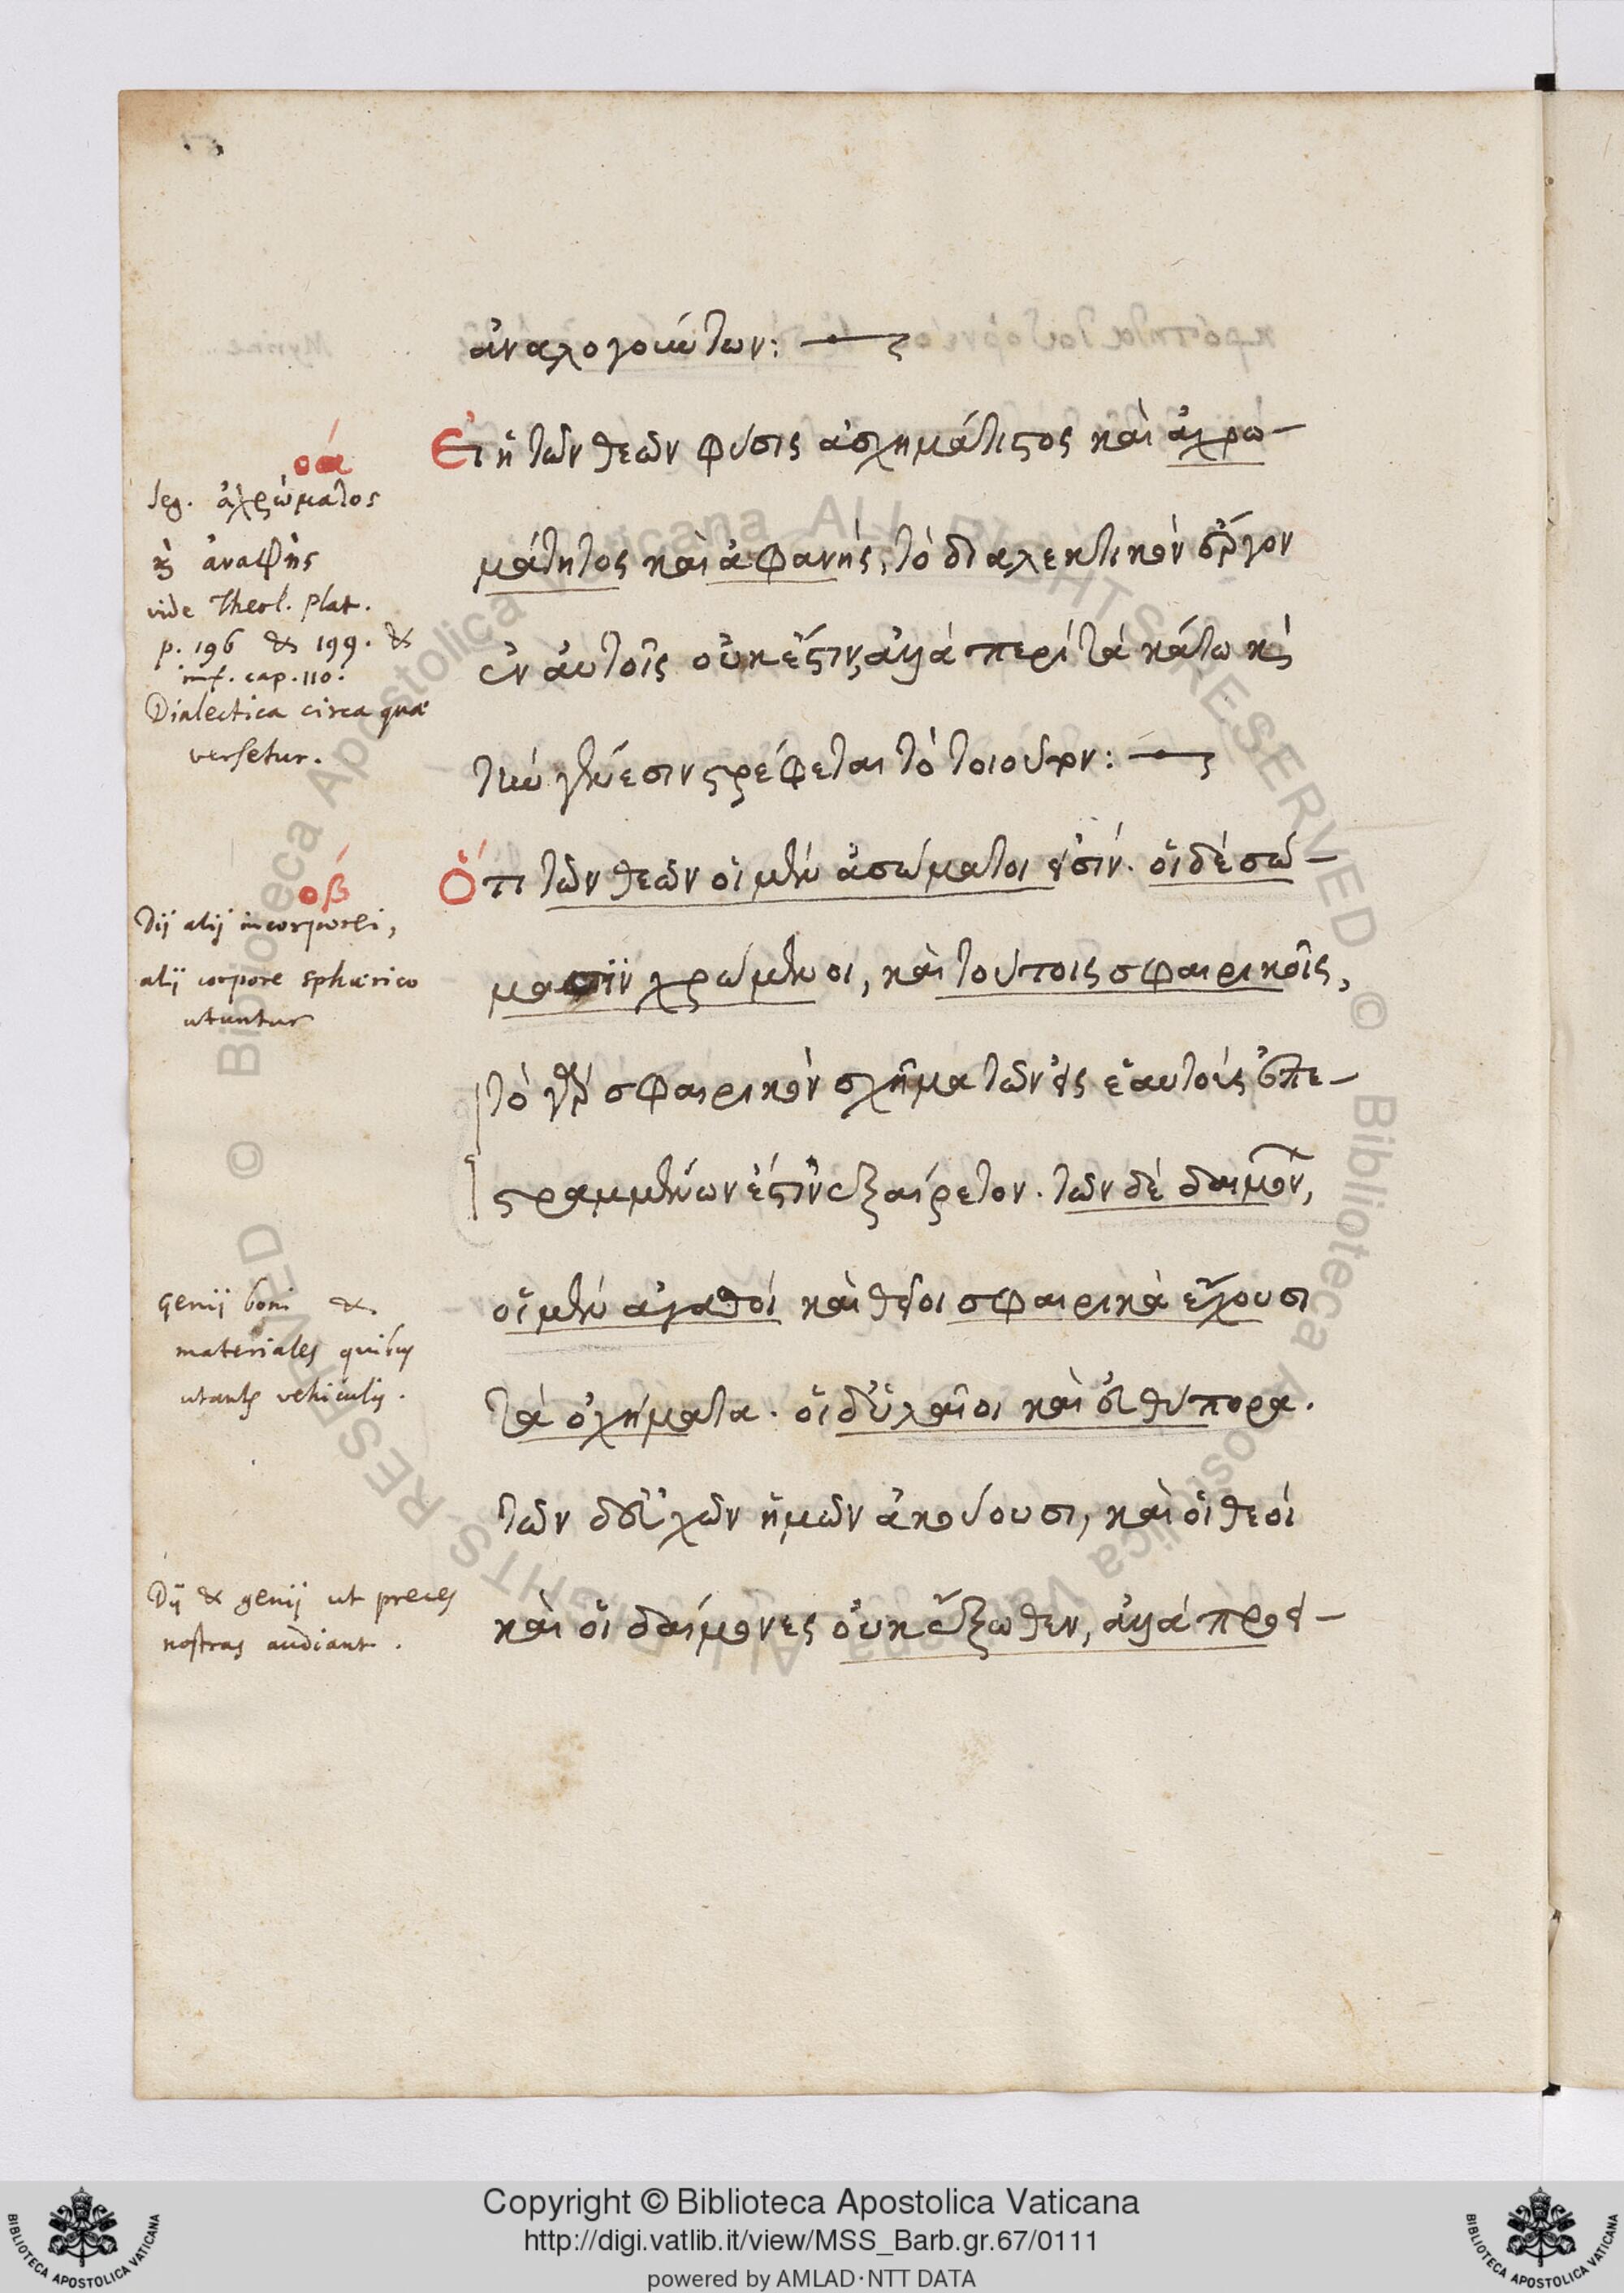 ἀναλογούντων:
οα
Εἰ ἡ τῶν θεῶν φύσις ἀσχημάτιστος καὶ ἀχρω-
μάτητος καὶ ἀφανής, τὸ διαλεκτικὸν ἔργον
ἐν αὐτοῖς οὐκ ἔστιν, ἀλλὰ περὶ τὰ κάτω καὶ
τὴν γένεσιν στρέφεται τὸ τοιοῦτον:
leg. ἀχρώματος
καὶ ἀναφὴς
vide Theol. Plat.
p. 196 & 199. &
inf. cap. 110.
Dialectica circa quæ
versetur.
οβ
Ὅτι τῶν θεῶν οἱ μὲν ἀσώματοι εἰσίν. οἱ δὲ σώ-
μασιν χρώμενοι, καὶ τούτοις σφαιρικοῖς,
τὸ γὰρ σφαιρικὸν σχῆμα τῶν εἰς ἑαυτοὺς ἐπε-
στραμμένων ἐστὶν ἐξαίρετον. τῶν δὲ δαιμόνων,
οἱ μὲν ἀγαθοὶ καὶ θεῖοι σφαιρικὰ ἔχουσι
τὰ ὀχήματα. οἱ δ' ὑλαῖοι καὶ εὐθύπορα.
τῶν δὲ εὐχῶν ἡμῶν ἀκούουσι, καὶ οἱ θεοὶ
καὶ οἱ δαίμονες οὐκ ἔξωθεν, ἀλλὰ προει-
Dij alij incorporei,
alij corpore sphærico
utuntur
Genij boni &
materiales quibus
utantur vehiculis.
Dij & genij ut preces
nostras audiant.
Copyright © Biblioteca Apostolica Vaticana
http://digi.vatlib.it/view/MSS_Barb.gr.67/0111
powered by AMLAD·NTT DATA
BIBLIOTECA APOSTOLICA VATICANA
BIBLIOTECA APOSTOLICA VATICANA